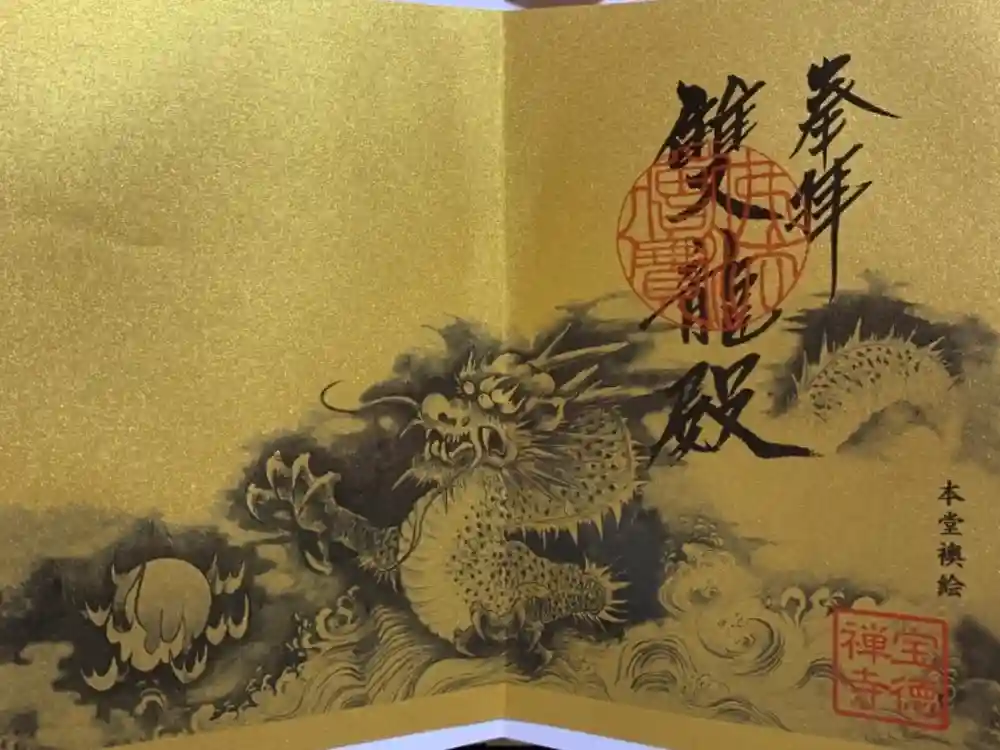 奉拝
雙龍殿
本堂襖絵
宝徳
禅寺